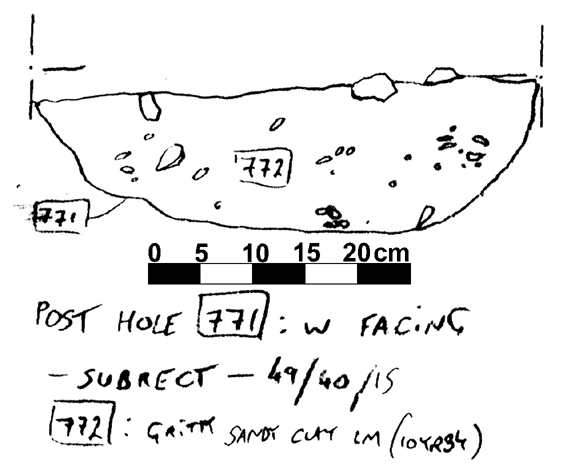 772
771
0 5 10 15 20 cm
POST HOLE 771 : W FACING
- SUBRECT - 49/40/15
772 : GRITTY SANDY CLAY LM (10YR34)